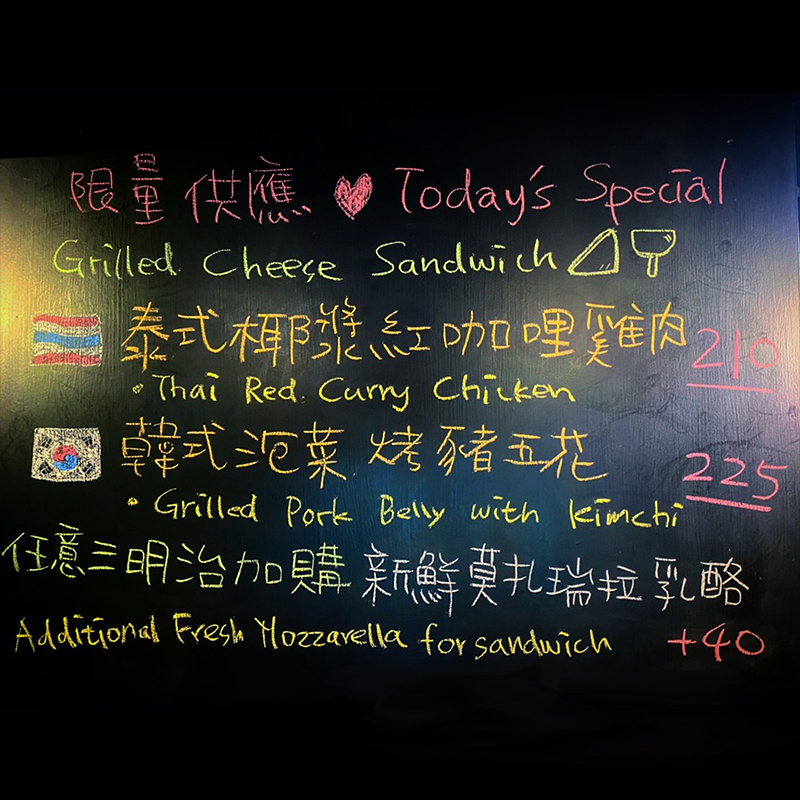 限量供應 ♥ Today's Special
Grilled Cheese Sandwich
泰式椰漿紅咖哩雞肉 210
• Thai Red Curry Chicken
韓式泡菜烤豬五花 225
• Grilled Pork Belly with Kimchi
任意三明治加購 新鮮莫扎瑞拉乳酪
Additional Fresh Mozzarella for sandwich +40